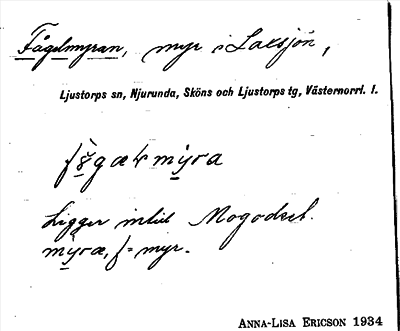 Fågelmyran, myr i Laxsjön,
Ljustorps sn, Njurunda, Sköns och Ljustorps tg, Västernorrl. l.
Ligger intill
myra, f = myr.
ANNA-LISA ERICSON 1934